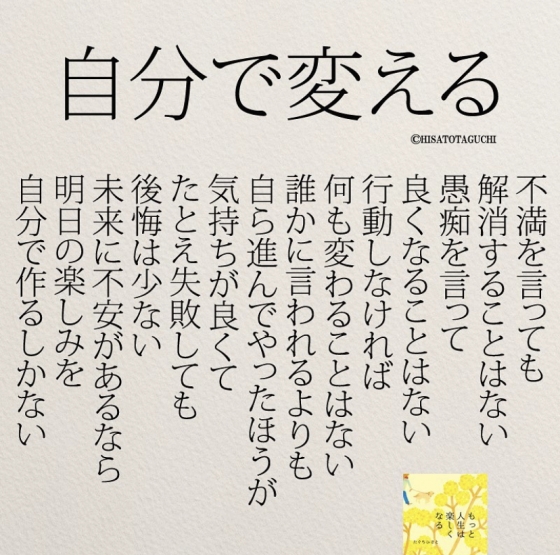 自分で変える
©HISATOTAGUCHI
不満を言っても
解消することはない
愚痴を言って
良くなることはない
行動しなければ
何も変わることはない
誰かに言われるよりも
自ら進んでやったほうが
気持ちが良くて
たとえ失敗しても
後悔は少ない
未来に不安があるなら
明日の楽しみを
自分で作るしかない
もっと
人生は
楽しく
なる